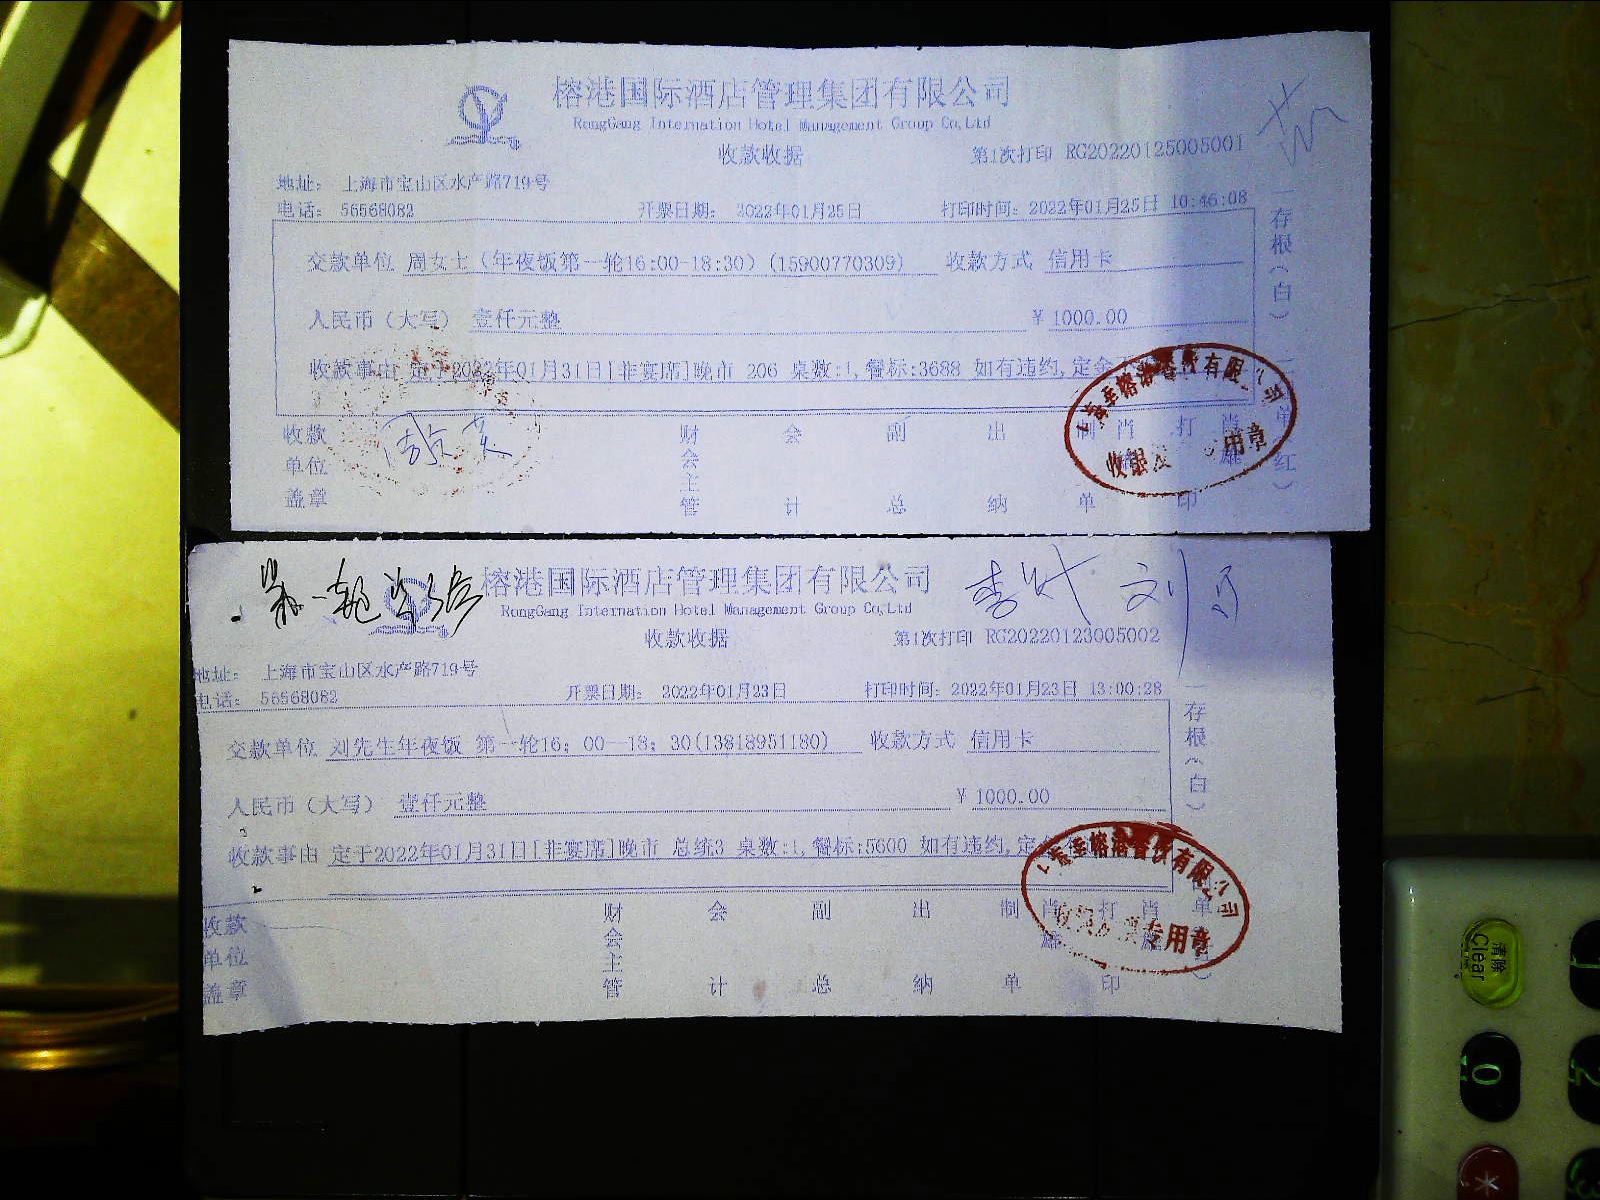 榕港国际酒店管理集团有限公司
RongGang Internation Hotel Management Group Co,Ltd
收款收据 第1次打印 RG20220125005001
地址： 上海市宝山区水产路719号
电话： 56568082 开票日期： 2022年01月25日 打印时间：2022年01月25日 10:46:08
交款单位 周女士（年夜饭第一轮16:00-18:30）(15900770309) 收款方式 信用卡
人民币（大写） 壹仟元整 ¥ 1000.00
收款事由 定于2022年01月31日[非宴席]晚市 206 桌数:1,餐标:3688 如有违约,定金
收款单位盖章 财会主管 会计 副总 出纳 制单 肖 打印 肖
存根（白）
红
榕港国际酒店管理集团有限公司
RongGang Internation Hotel Management Group Co,Ltd
收款收据 第1次打印 RG20220123005002
地址： 上海市宝山区水产路719号
电话： 56568082 开票日期： 2022年01月23日 打印时间：2022年01月23日 13:00:28
交款单位 刘先生年夜饭 第一轮16：00--18：30(13818951180) 收款方式 信用卡
人民币（大写） 壹仟元整 ¥ 1000.00
收款事由 定于2022年01月31日[非宴席]晚市 总统3 桌数:1,餐标:5600 如有违约,定
收款单位盖章 财会主管 会计 副总 出纳 制单 肖 打印 肖
存根（白）
专用章
清除
Clear
0
2
3
*